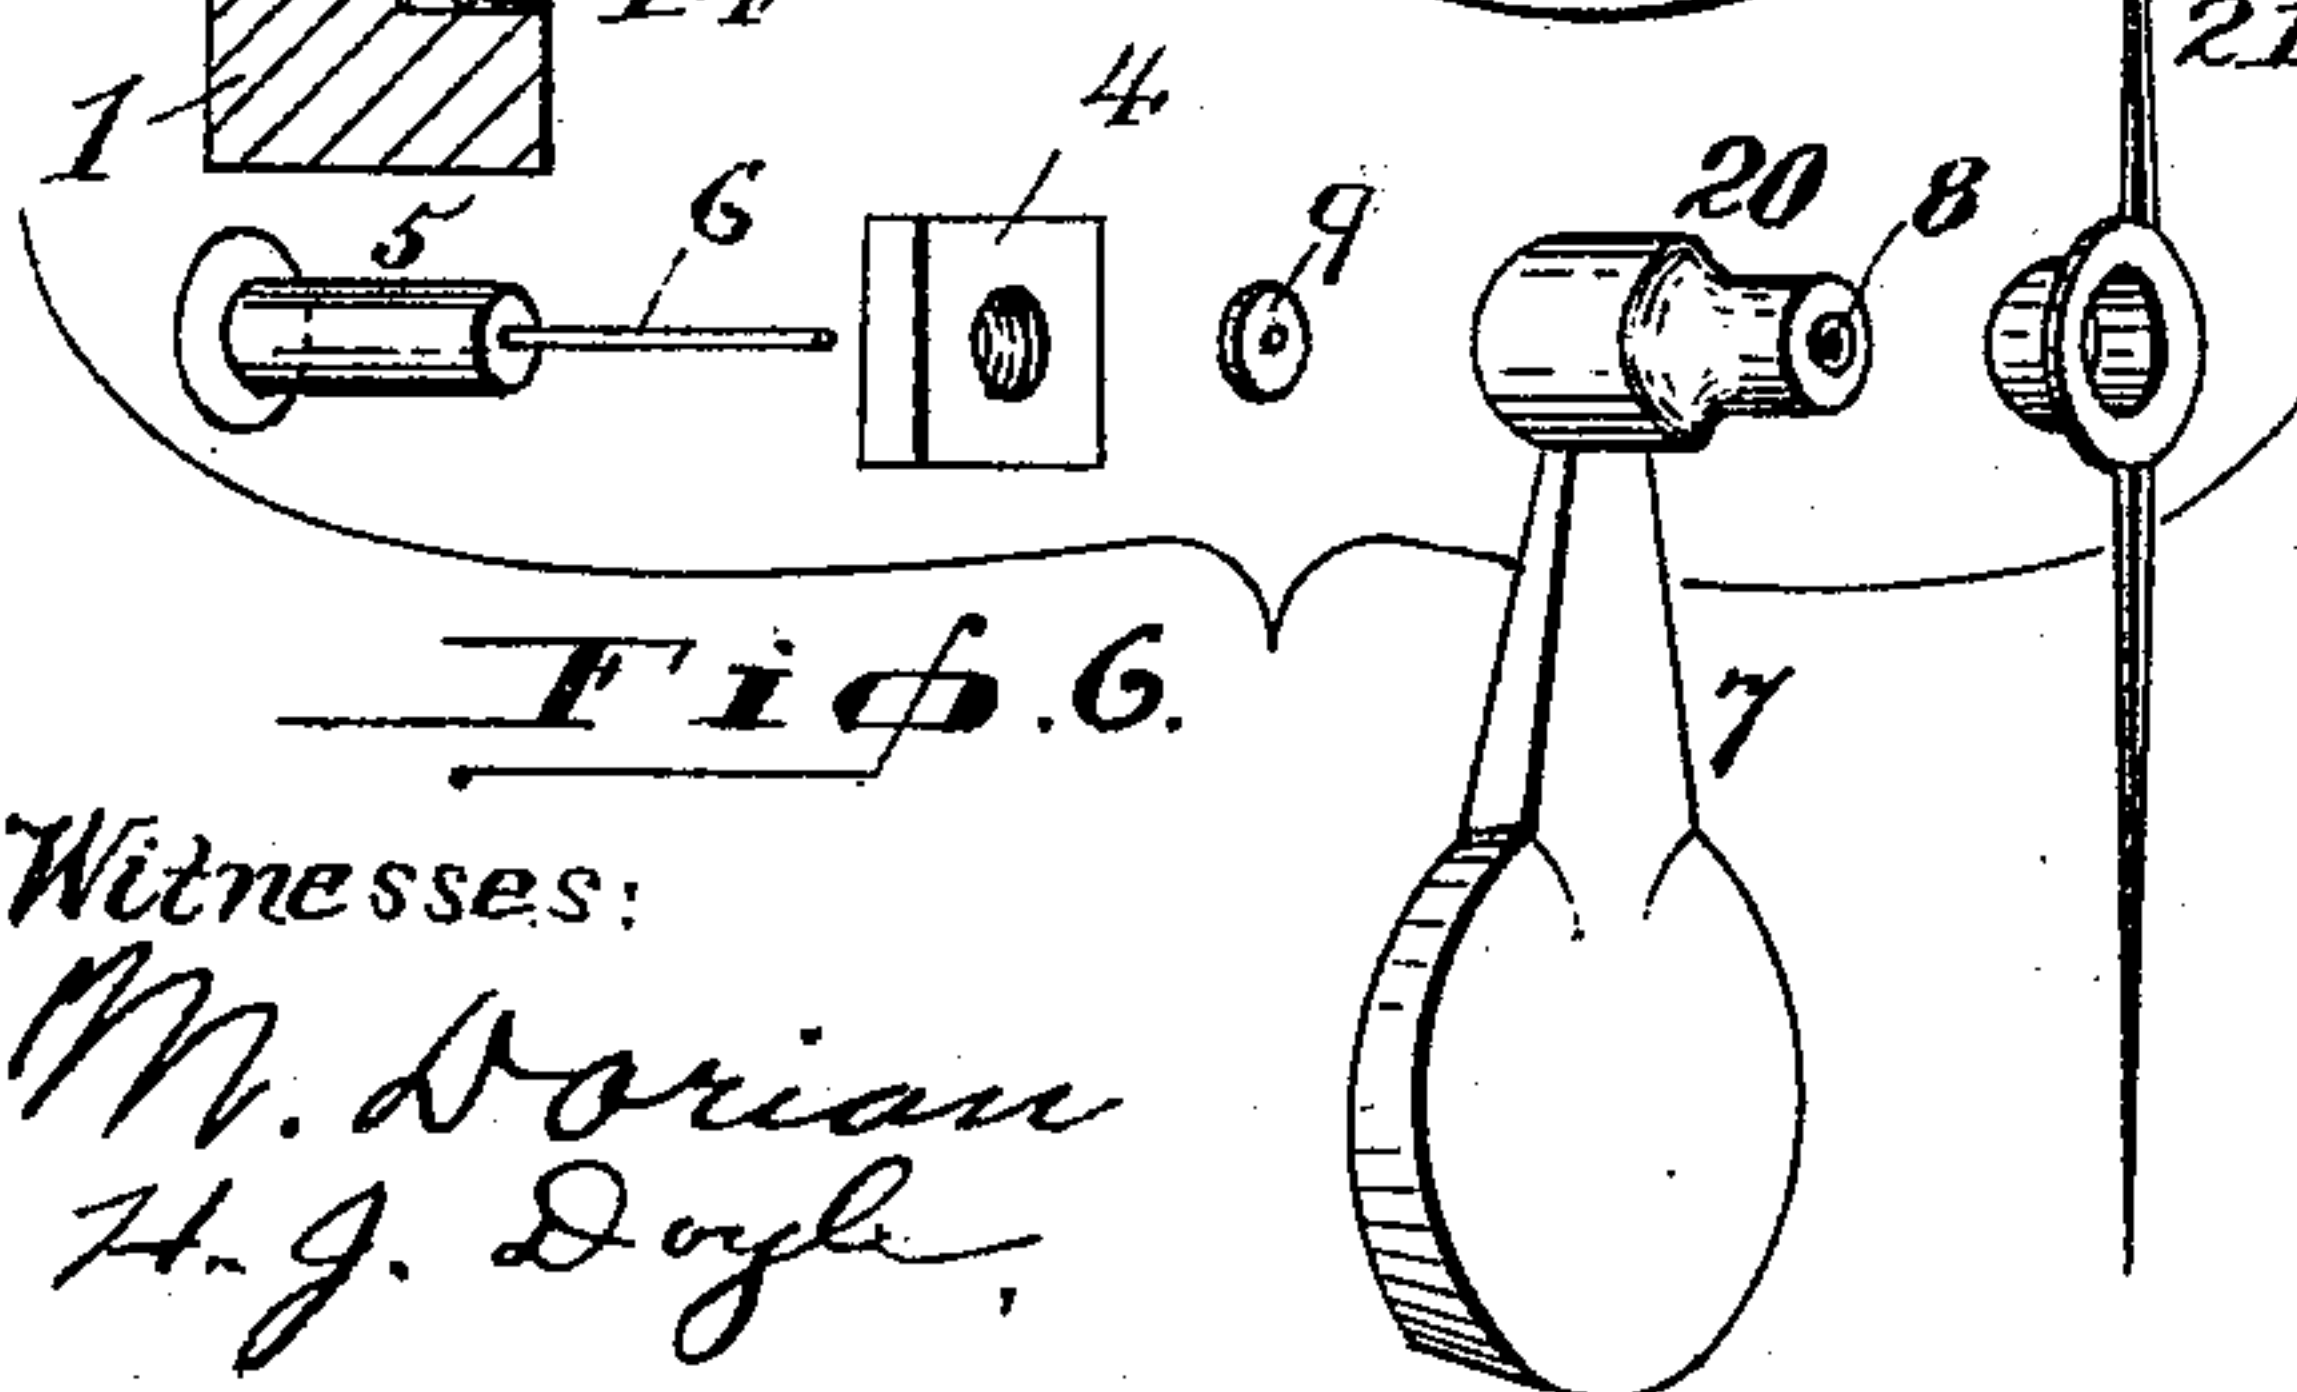 21
4
1
20
8
9
6
5
Fig. 6.
7
Witnesses:
M. Dorian
H. J. Doyle,